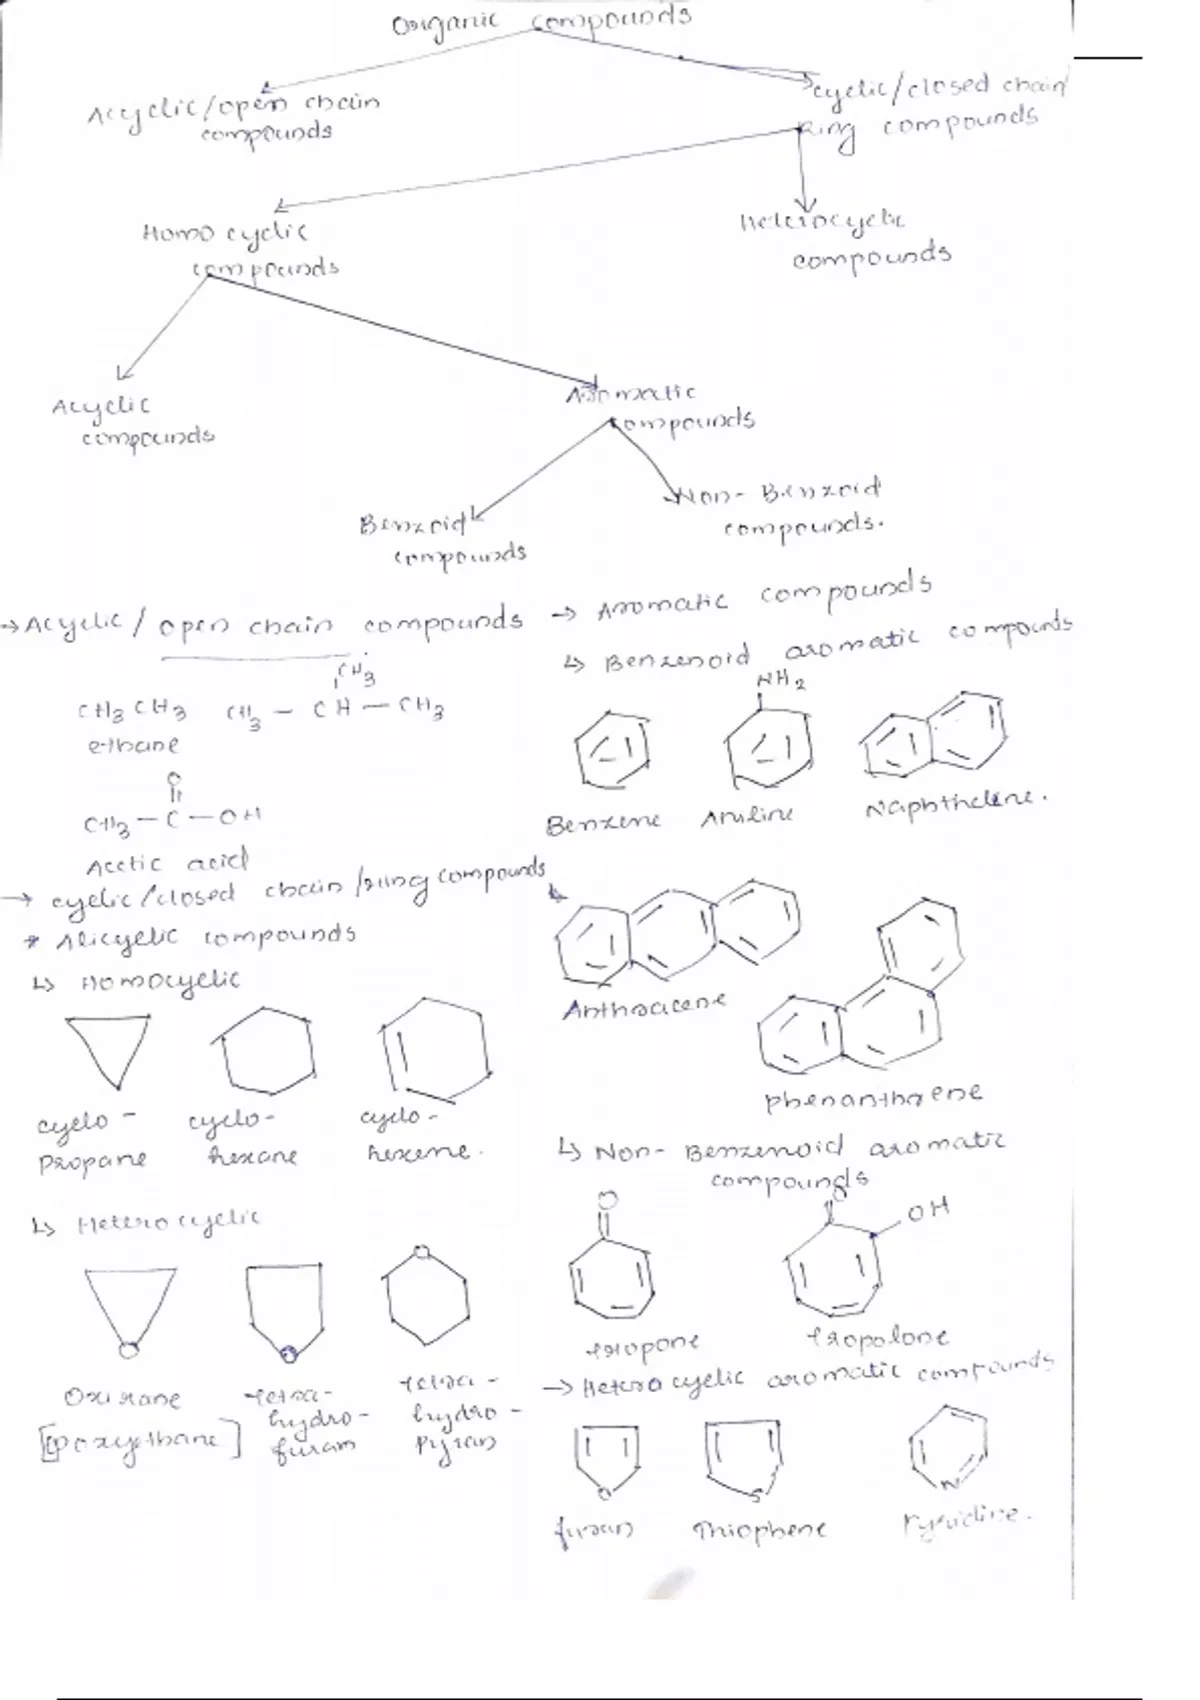 Organic compounds
Acyclic/open chain
compounds
cyclic/closed chain
Ring compounds
Homo cyclic
compounds
Heterocyclic
compounds
Acyclic
compounds
Aromatic
compounds
Benzoid
compounds
Non-Benzoid
compounds.
→ Acyclic / open chain compounds
CH3
CH3 CH3 CH3 — CH — CH3
ethane
O
CH3 — C — OH
Acetic acid
→ cyclic/closed chain/ring compounds
* Alicyclic compounds
↳ Homocyclic
cyclo-
propane
cyclo-
hexane
cyclo-
hexene.
↳ Heterocyclic
O
O
O
Oxirane
[Epoxyethane]
Tetra-
hydro-
furan
Tetra-
hydro-
pyran
→ Aromatic compounds
↳ Benzenoid aromatic compounds
NH2
Benzene Aniline Naphthelene.
Anthracene
phenanthrene
↳ Non-Benzenoid aromatic
compounds
O
O
OH
tropone
tropolone
→ Heterocyclic aromatic compounds
O
S
N
furan Thiophene Pyridine.